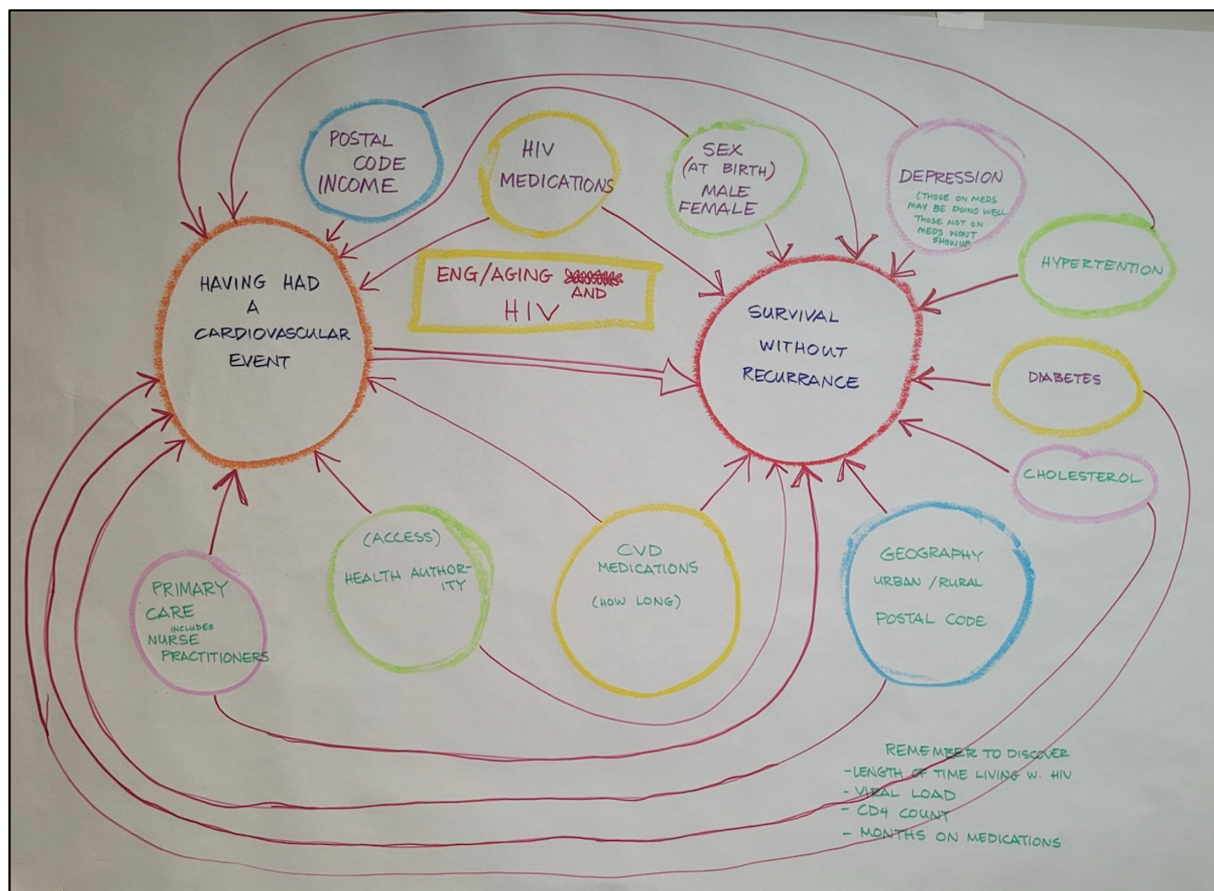 POSTAL
CODE
INCOME
HIV
MEDICATIONS
SEX
(AT BIRTH)
MALE
FEMALE
DEPRESSION
(THOSE ON MEDS
MAY BE DOING WELL
THOSE NOT ON
MEDS WONT
SHOW UP
HYPERTENTION
HAVING HAD
A
CARDIOVASCULAR
EVENT
ENG/AGING
AND
HIV
SURVIVAL
WITHOUT
RECURRANCE
DIABETES
CHOLESTEROL
PRIMARY
CARE
INCLUDES
NURSE
PRACTITIONERS
(ACCESS)
HEALTH AUTHOR-
ITY
CVD
MEDICATIONS
(HOW LONG)
GEOGRAPHY
URBAN/RURAL
POSTAL CODE
REMEMBER TO DISCOVER
-LENGTH OF TIME LIVING W. HIV
- VIRAL LOAD
- CD4 COUNT
- MONTHS ON MEDICATIONS